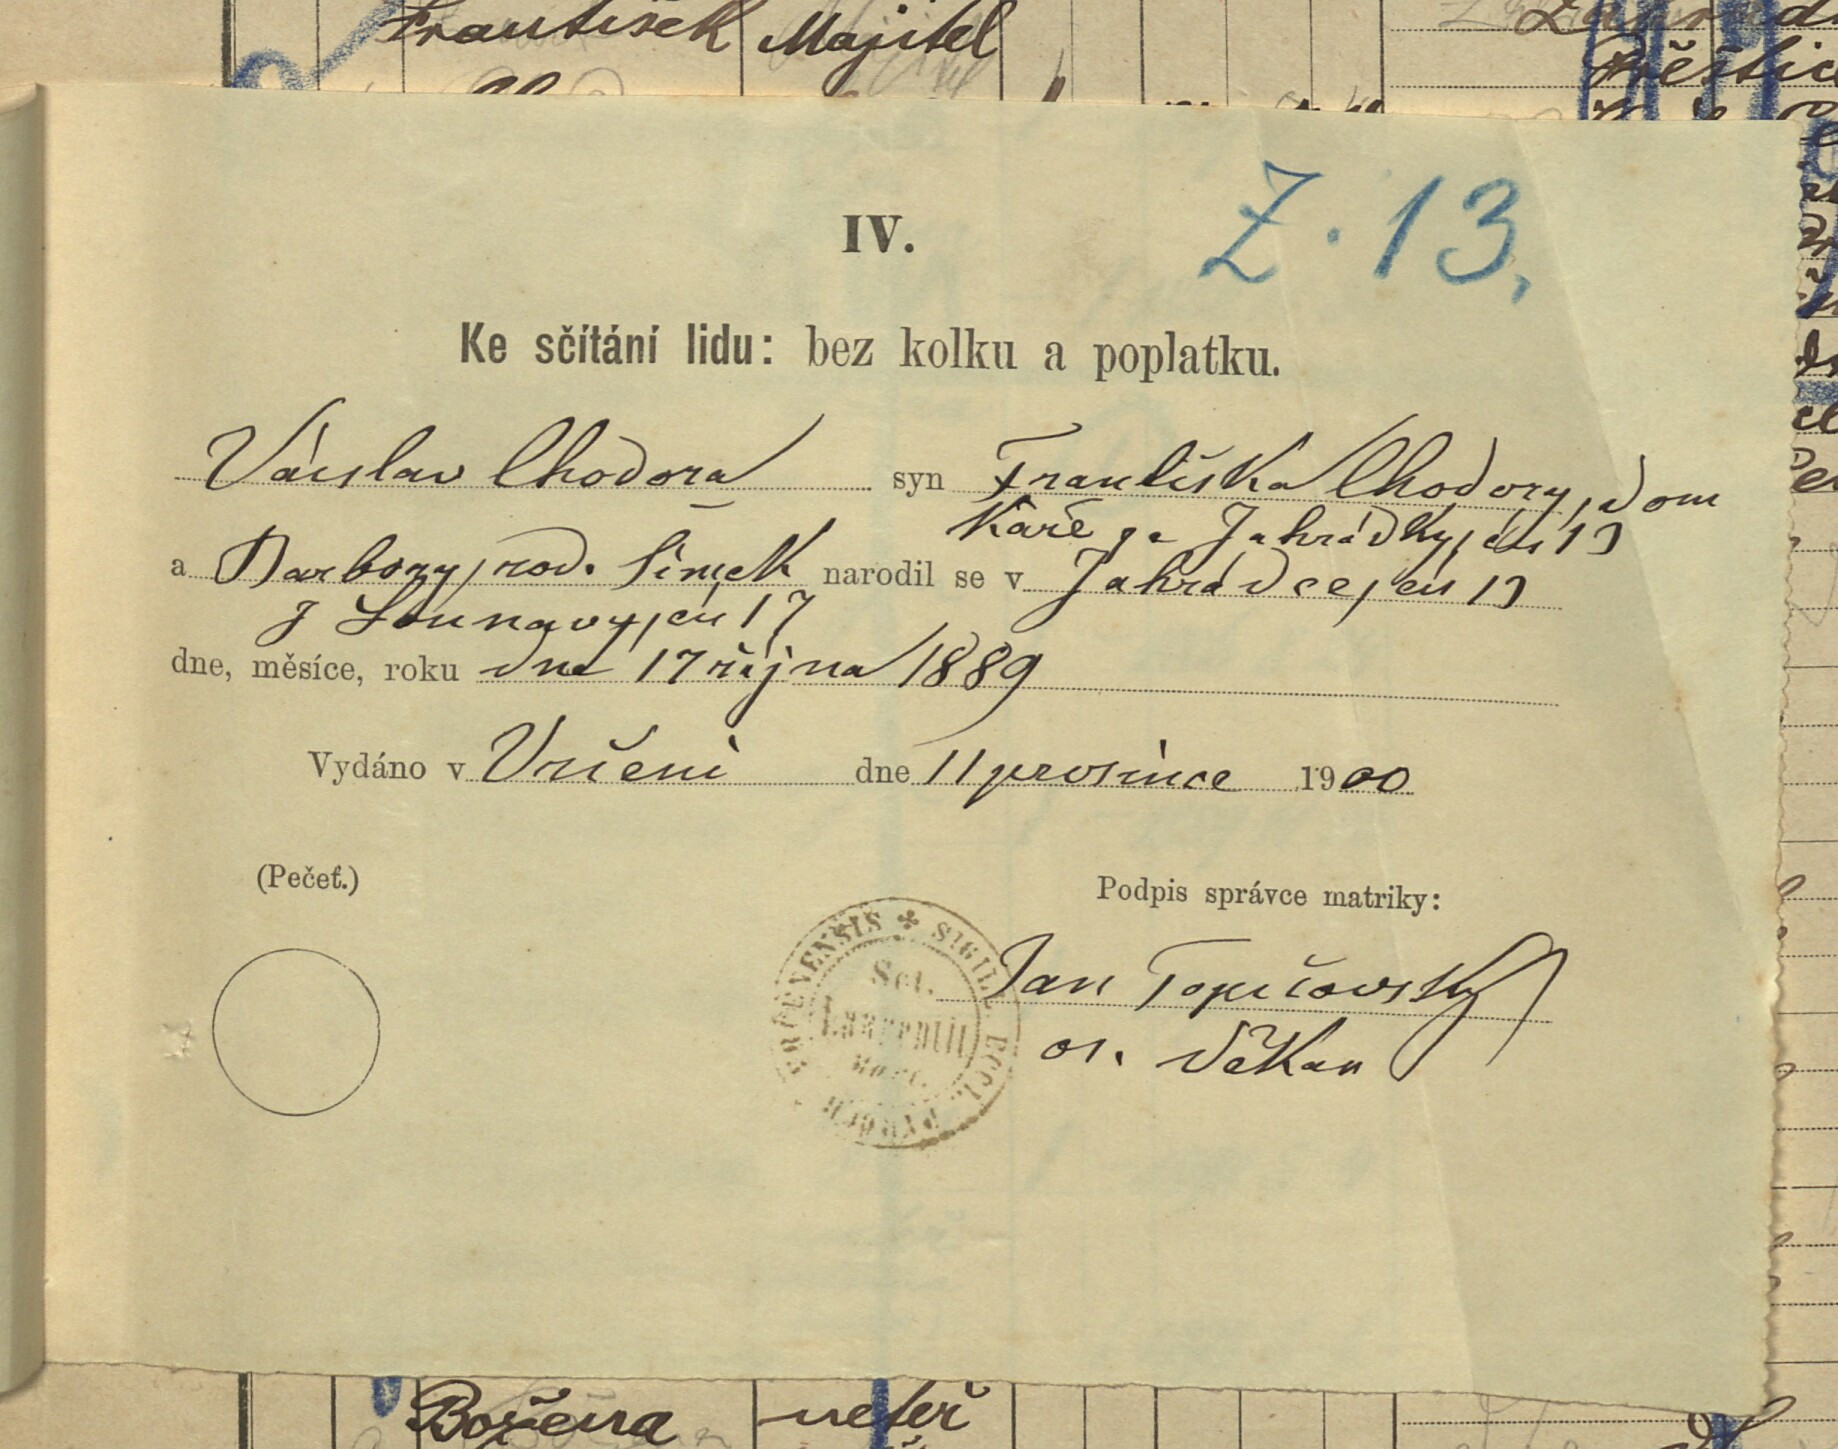 František Majitel
Z. 13.
IV.
Ke sčítání lidu: bez kolku a poplatku.
Václav Chodora syn Františka Chodory, dom
káře ze Zahrádky, čís 13
a Barbory, rod. Šimek narodil se v Zahrádce, čís 13
z Lounavy, čís 17
dne, měsíce, roku dne 17 října 1889
Vydáno v Vrčeni dne 11 prosince 1900
(Pečeť.)
Podpis správce matriky:
SIGILL. ECCL.
Sct.
Laurentii
mart.
Jan Topičovský
os. děkan
Božena neteř